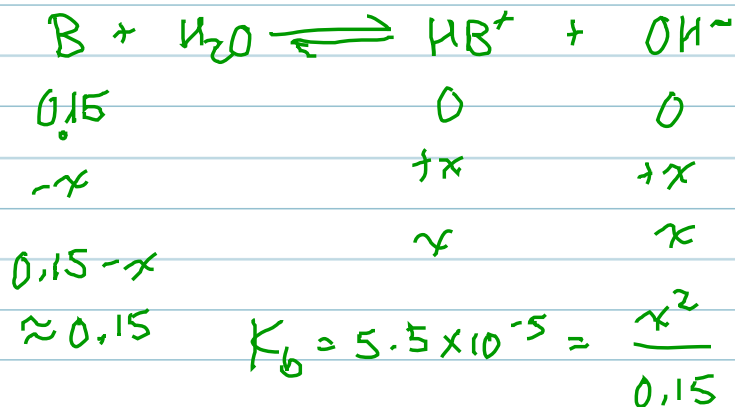 B + H₂O ⇌ HB⁺ + OH⁻
0.15 0 0
-x +x +x
0.15-x x x
≈0.15 K_b = 5.5×10⁻⁵ = x²/0.15